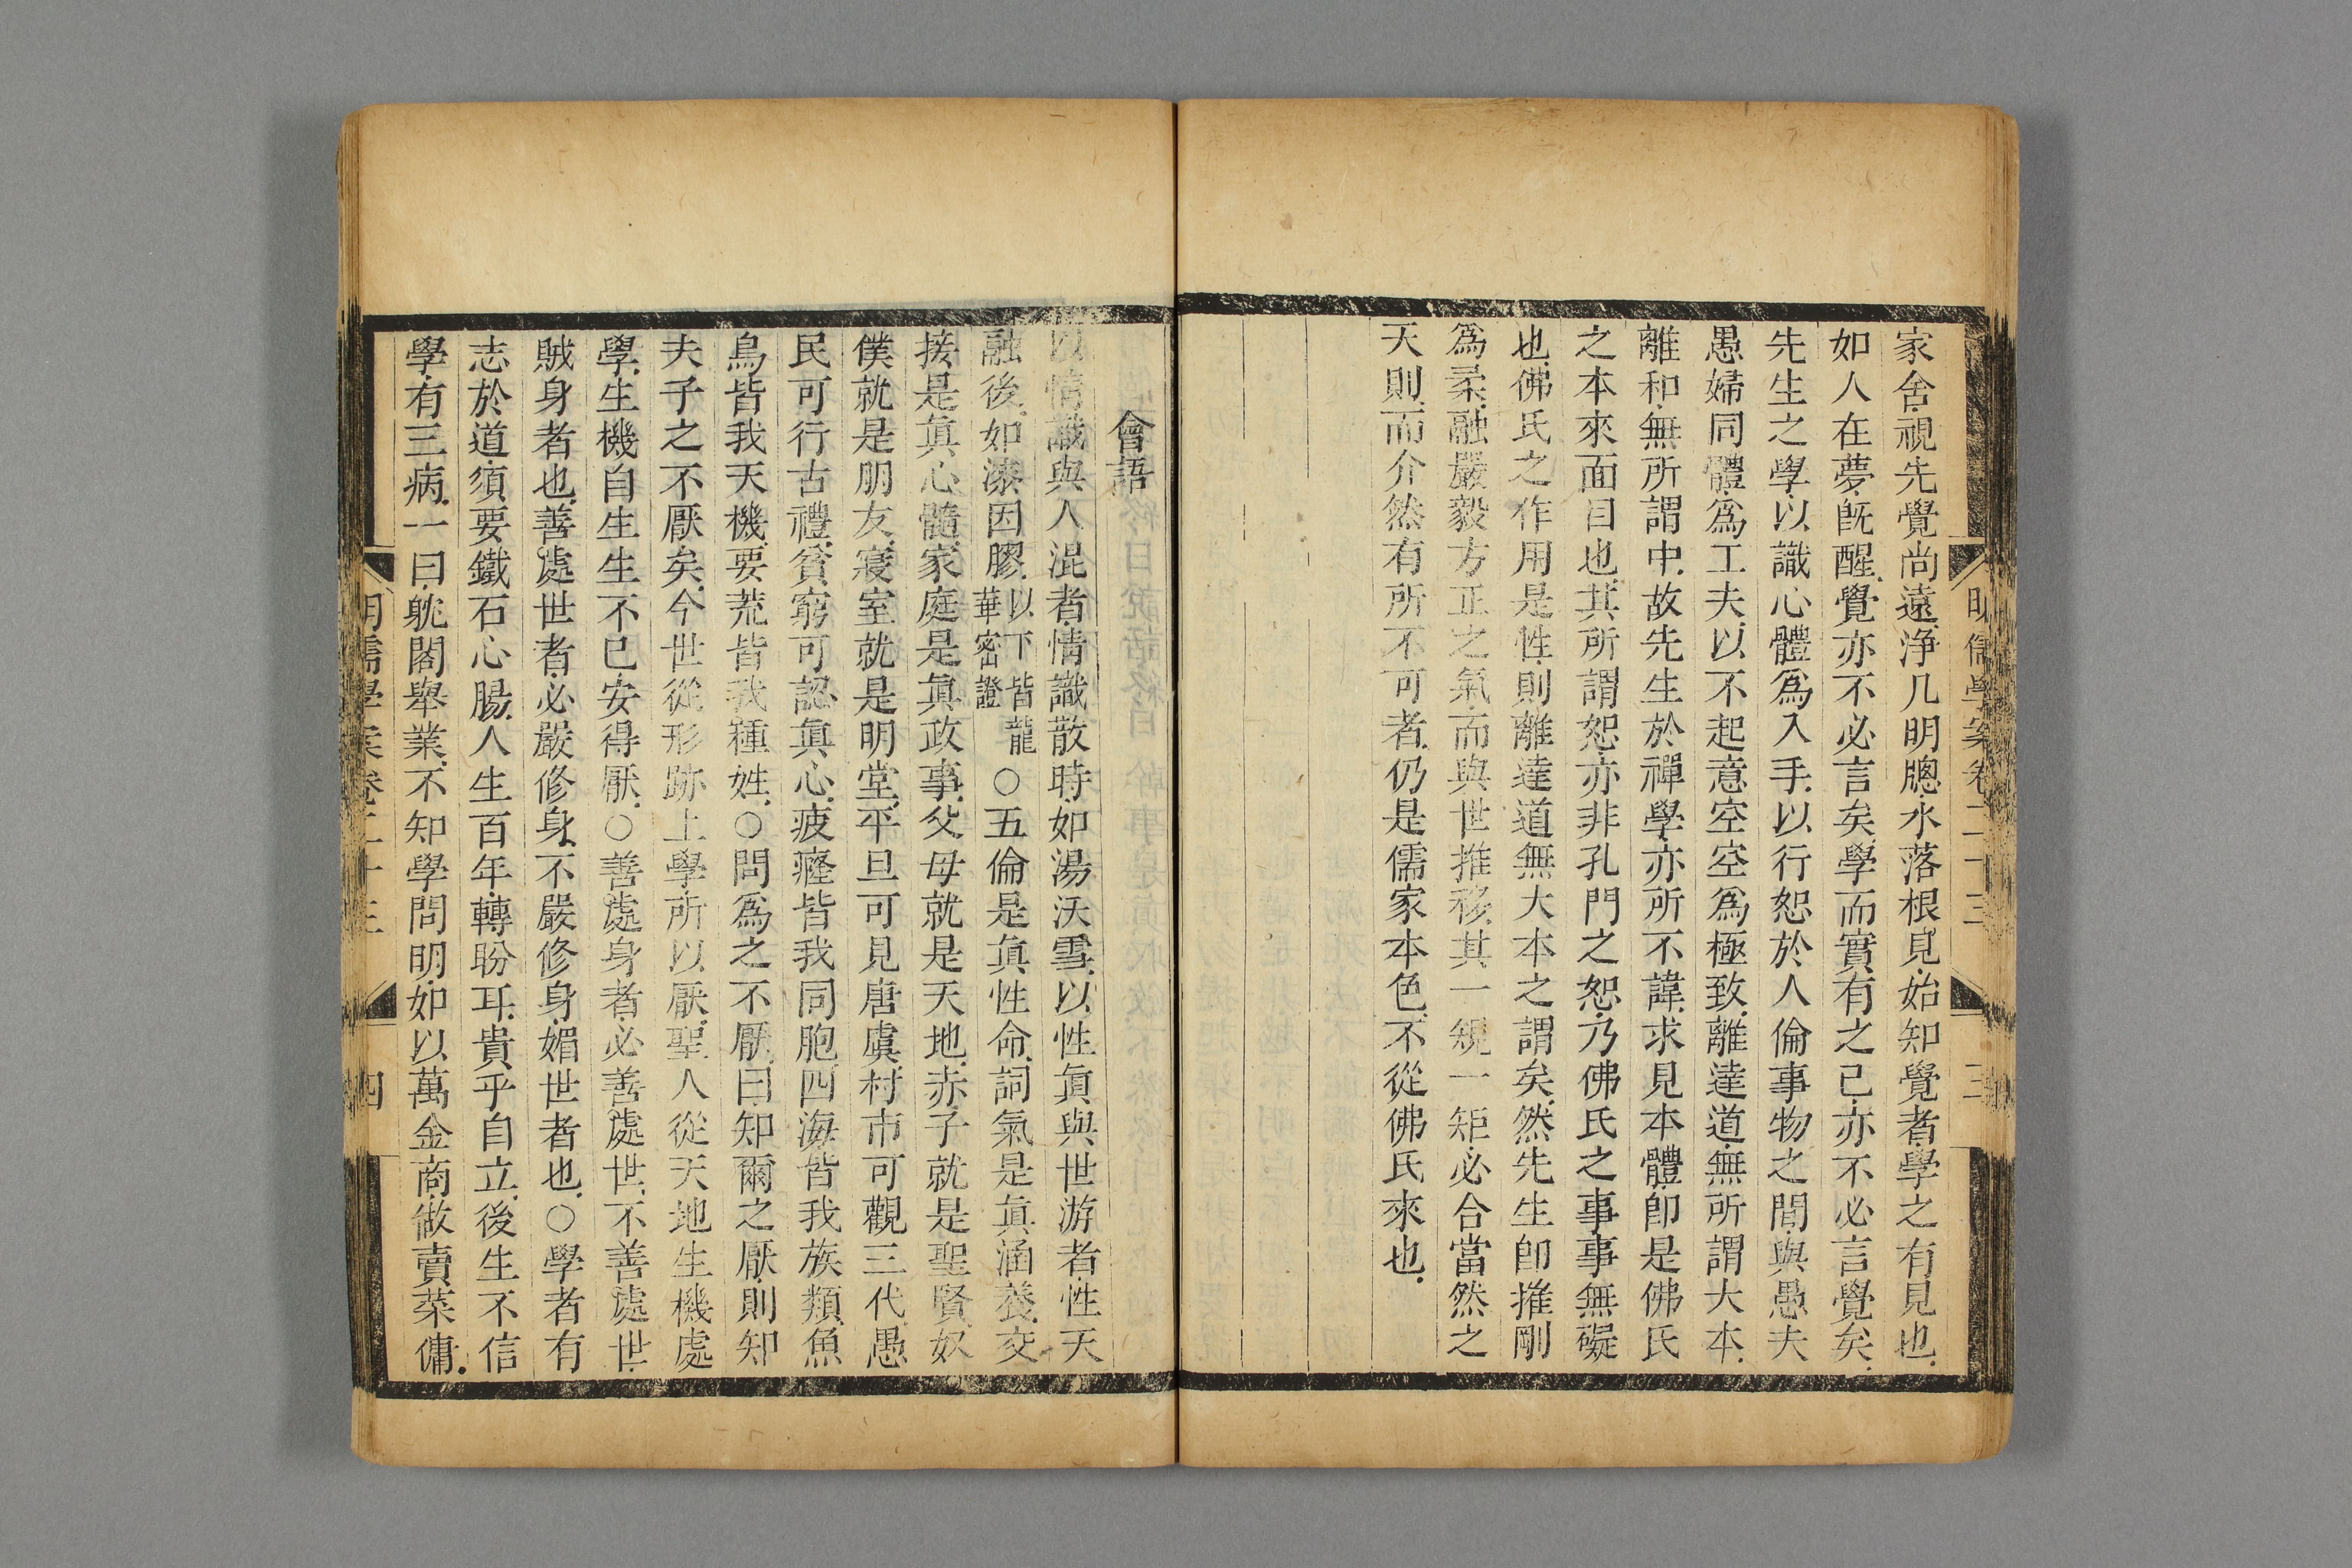 明儒學案卷二十三
三
家舍視先覺尚遠淨几明牕水落根見始知覺者學之有見也
如人在夢旣醒覺亦不必言矣學而實有之已亦不必言覺矣
先生之學以識心體爲入手以行恕於人倫事物之間與愚夫
愚婦同體爲工夫以不起意空空爲極致離達道無所謂大本
離和無所謂中故先生於禪學亦所不諱求見本體卽是佛氏
之本來面目也其所謂恕亦非孔門之恕乃佛氏之事事無礙
也佛氏之作用是性則離達道無大本之謂矣然先生卽摧剛
爲柔融嚴毅方正之氣而與世推移其一規一矩必合當然之
天則而介然有所不可者仍是儒家本色不從佛氏來也
會語
以情識與人混者情識散時如湯沃雪以性眞與世游者性天
融後如漆因膠以下皆龍華密證○五倫是眞性命詞氣是眞涵養交
接是眞心髓家庭是眞政事父母就是天地赤子就是聖賢奴
僕就是朋友寢室就是明堂平旦可見唐虞村市可觀三代愚
民可行古禮貧窮可認眞心疲癃皆我同胞四海皆我族類魚
鳥皆我天機要荒皆我種姓○問爲之不厭曰知爾之厭則知
夫子之不厭矣今世從形跡上學所以厭聖人從天地生機處
學生機自生生不已安得厭○善處身者必善處世不善處世
賊身者也善處世者必嚴修身不嚴修身媚世者也○學者有
志於道須要鐵石心腸人生百年轉盼耳貴乎自立後生不信
學有三病一曰躭閣舉業不知學問明如以萬金商做賣菜傭
明儒學案卷二十三
四